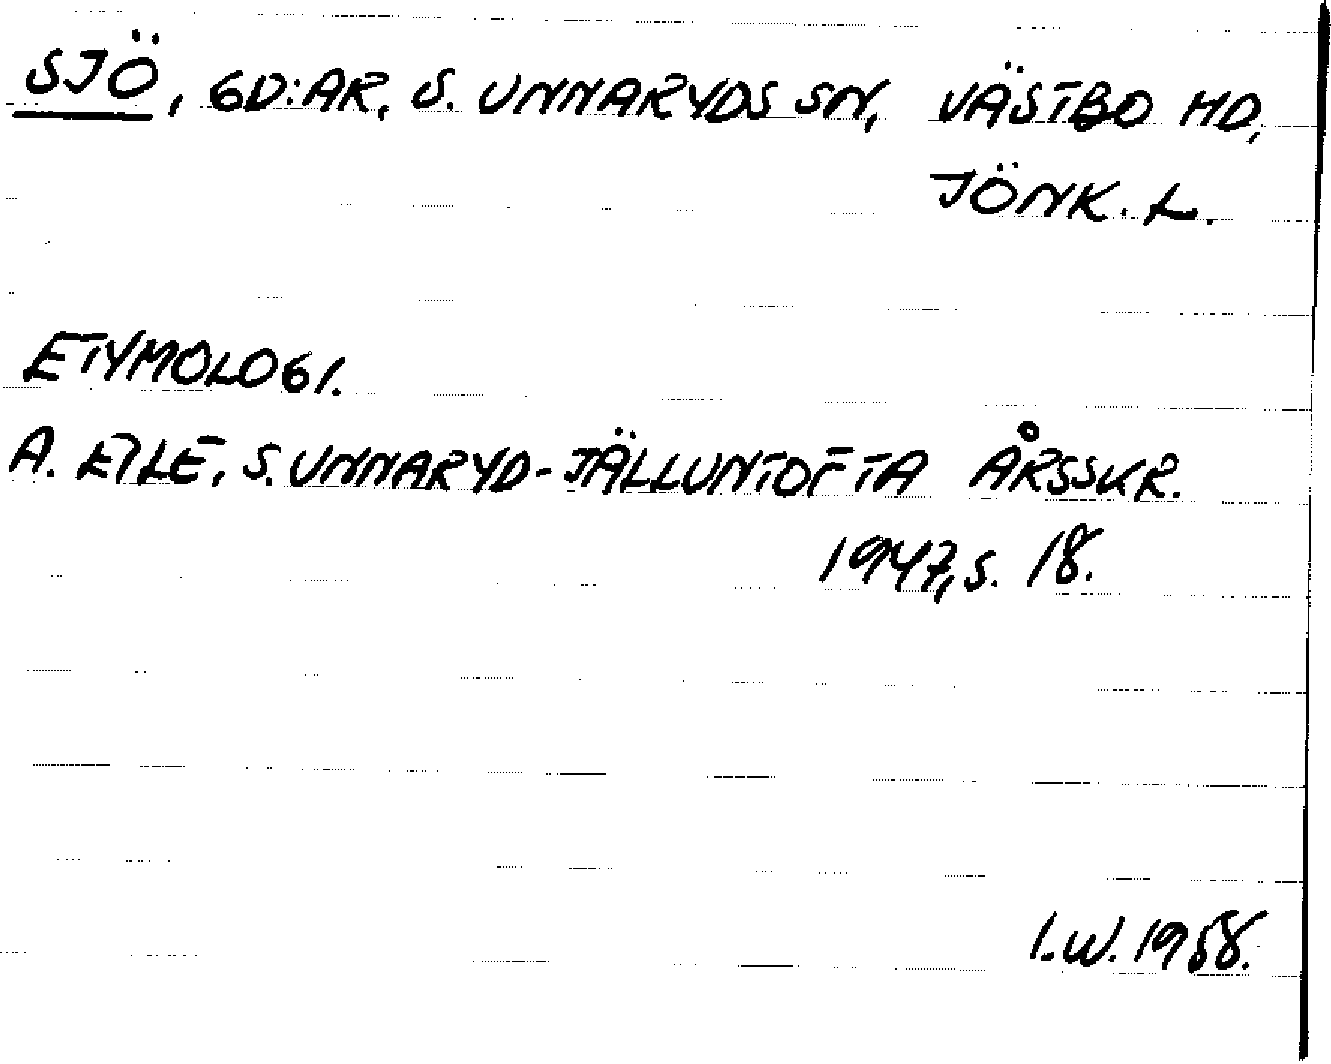 SJÖ, GD:AR, S. UNNARYDS SN, VÄSTBO HD,
JÖNK. L.
ETYMOLOGI.
A. ETLE, S. UNNARYD-JÄLLUNTOFTA ÅRSSKR.
1947, S. 18.
I.W. 1958.